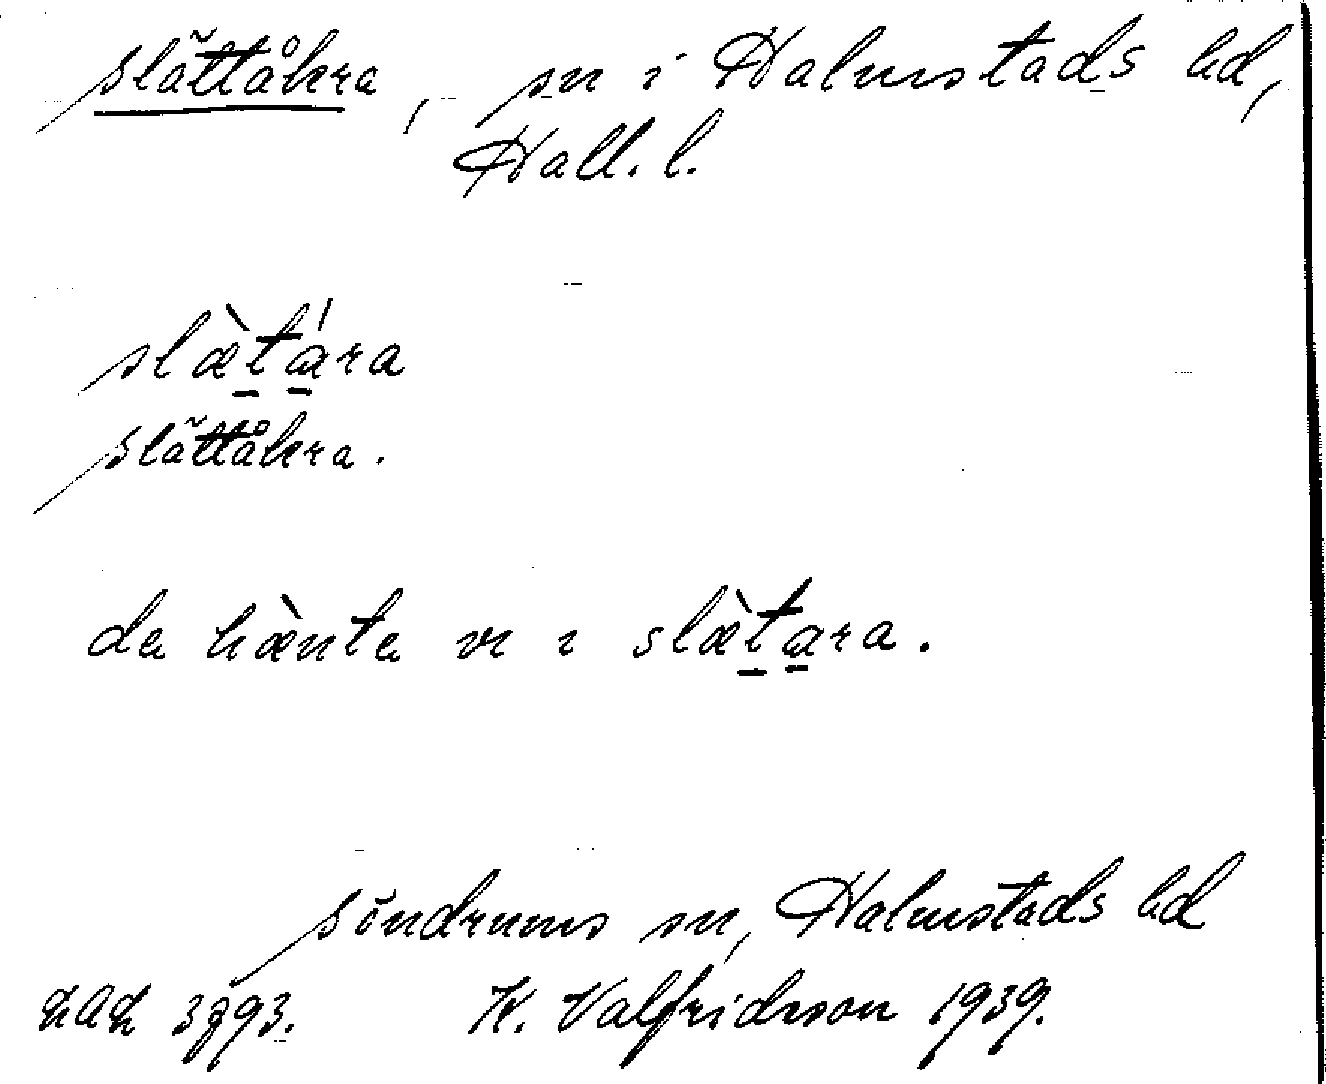 Slättåkra, sn i Halmstads hd,
Hall. l.
slæ̀t̠á̠ra
Slättåkra.
de hænte vi i slæ̀t̠a̠ra.
Söndrums sn, Halmstads hd
K. Valfridsson 1939.